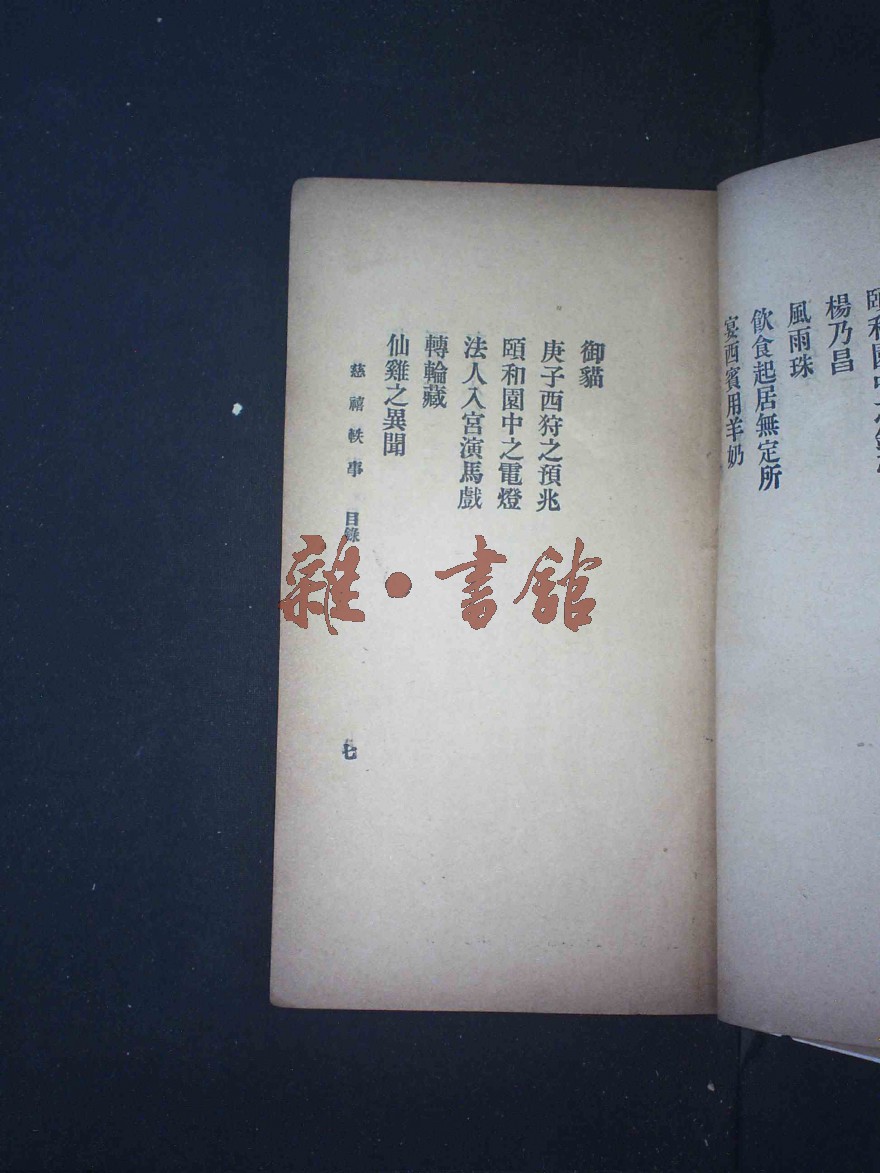 楊乃昌
風雨珠
飲食起居無定所
宴西賓用羊奶
御貓
庚子西狩之預兆
頤和園中之電燈
法人入宮演馬戲
轉輪藏
仙雞之異聞
慈禧軼事 目錄
七
雜·書館